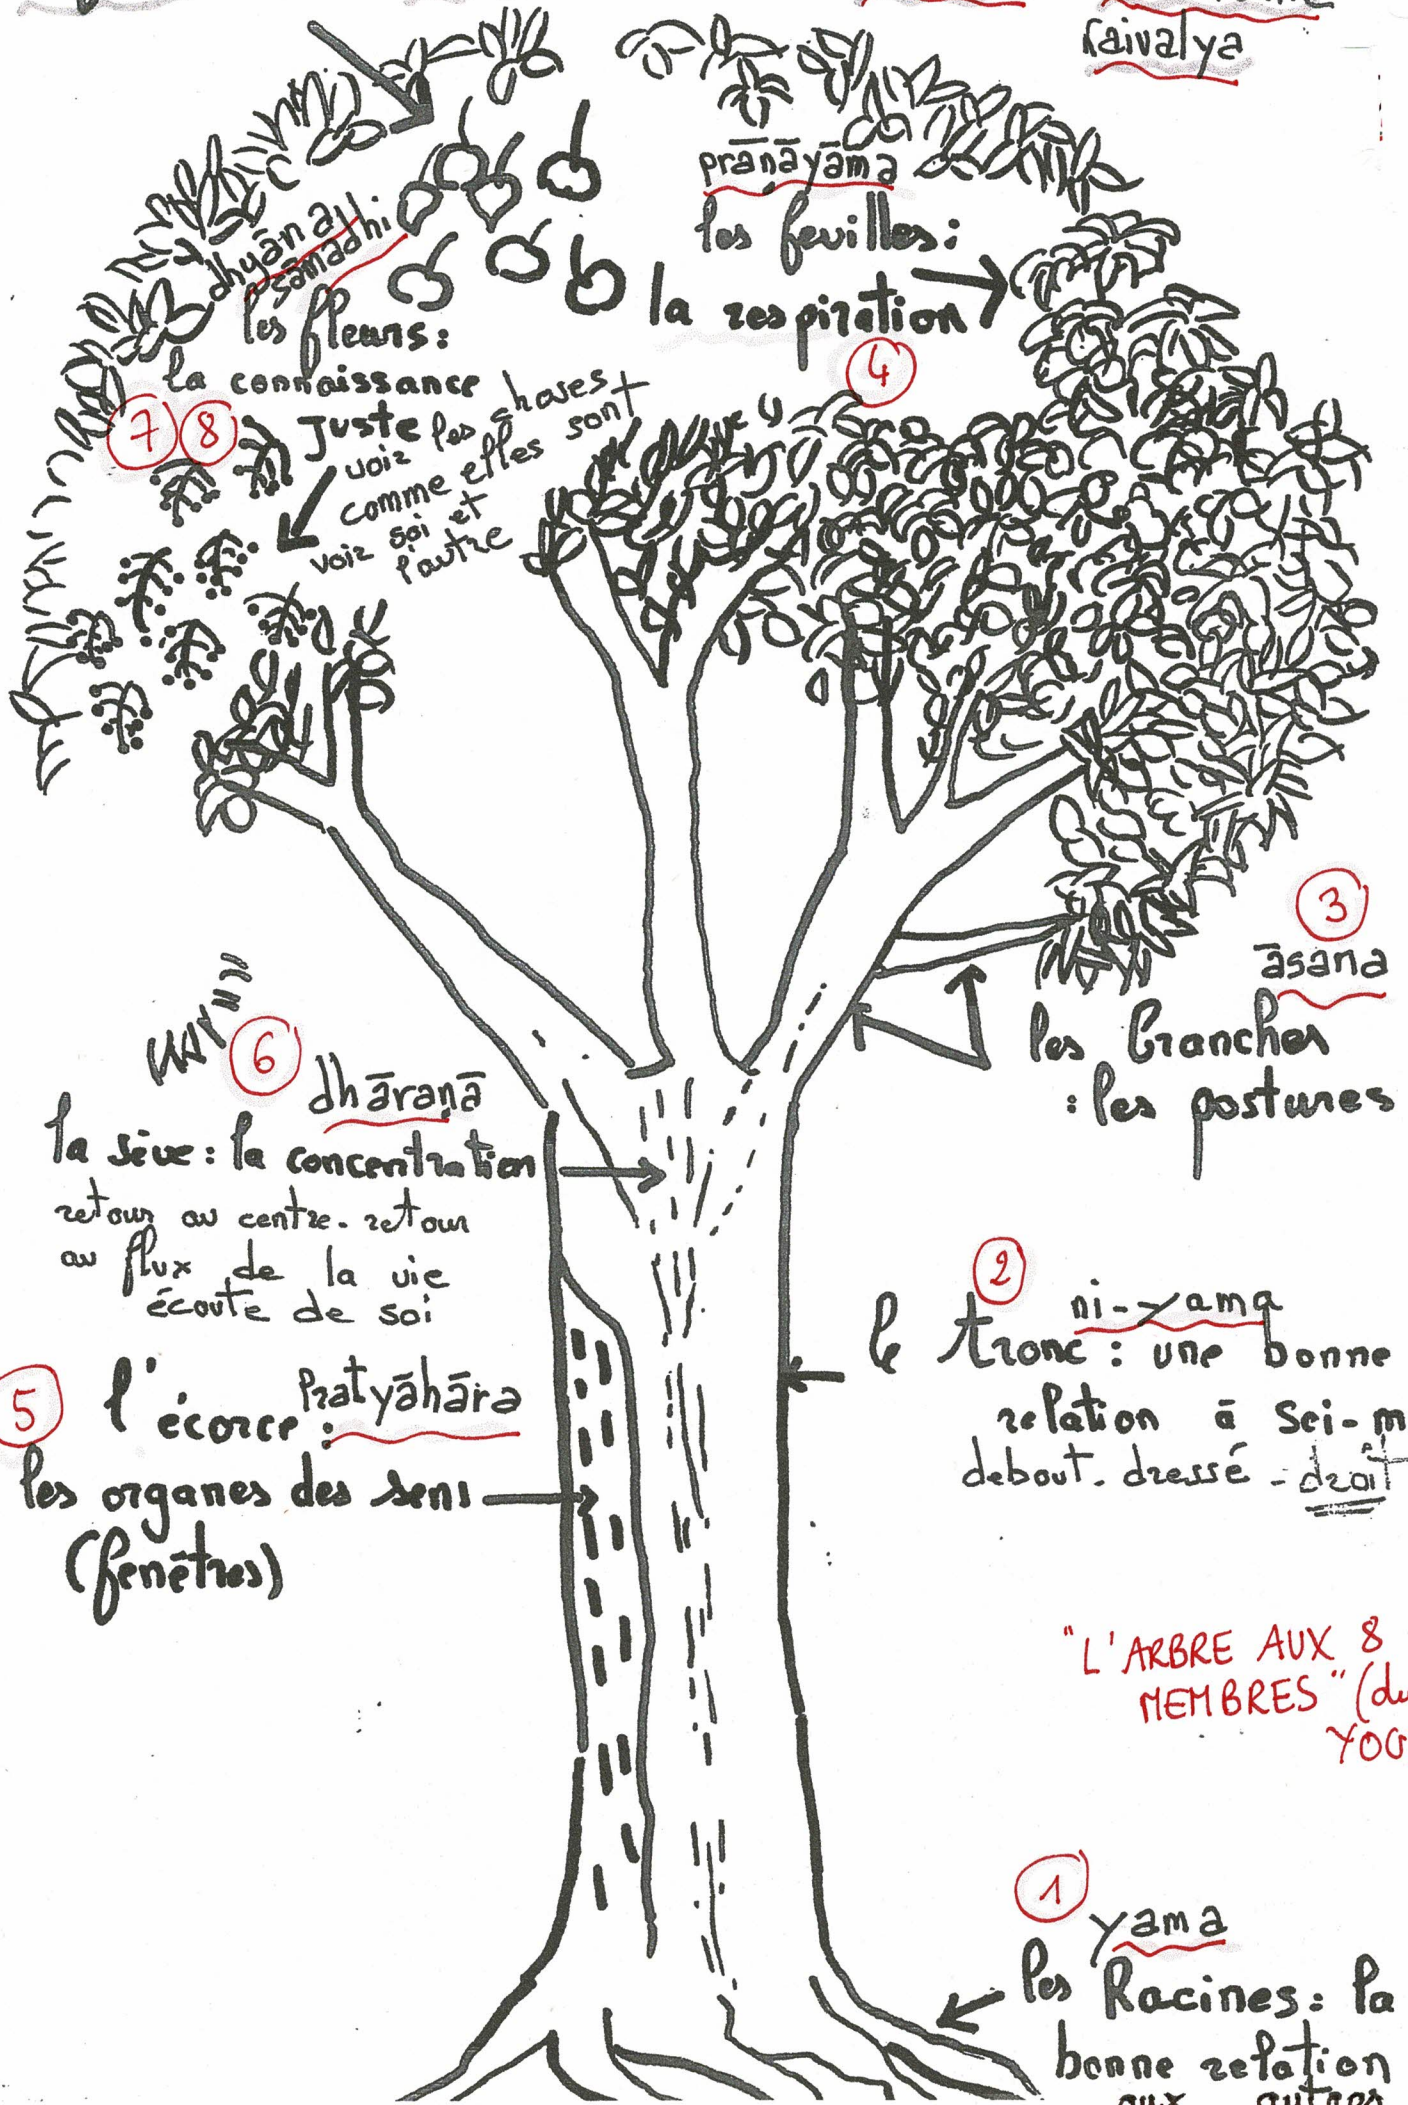 kaivalya
prāṇāyāma
les feuilles:
la respiration
4
dhyāna
samādhi
les fleurs:
la connaissance
juste
7 8
voir les choses
comme elles sont
voir soi et
l'autre
3
āsana
les branches
: les postures
6
dhāraṇā
la sève: la concentration
retour au centre. retour
au flux de la vie
écoute de soi
2
ni-yama
le tronc: une bonne
relation à soi-m
debout. dressé - droit
5
Pratyāhāra
l'écorce:
les organes des sens
(fenêtres)
"L'ARBRE AUX 8
MEMBRES" (du
YOG
1
yama
les Racines: la
bonne relation
aux autres